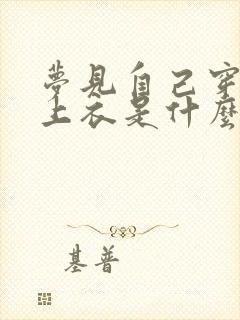 夢見自己穿
上衣是什麼
基普